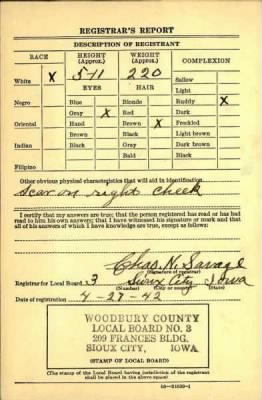 REGISTRAR'S REPORT
DESCRIPTION OF REGISTRANT
RACE HEIGHT (Approx.) WEIGHT (Approx.) COMPLEXION
White X 5-11 220 Sallow
EYES HAIR Light
Negro Blue Blonde Ruddy X
Gray X Red Dark
Oriental Hazel Brown X Freckled
Brown Black Light brown
Indian Black Gray Dark brown
Bald Black
Filipino
Other obvious physical characteristics that will aid in identification
Scar on right cheek
I certify that my answers are true; that the person registered has read or has had
read to him his own answers; that I have witnessed his signature or mark and that
all of his answers of which I have knowledge are true, except as follows:
Chas N. Savage
(Signature of registrar)
Registrar for Local Board 3 Sioux City Iowa
(Number) (City or county) (State)
Date of registration 4-27-42
WOODBURY COUNTY
LOCAL BOARD NO. 3
209 FRANCES BLDG.
SIOUX CITY, IOWA
(STAMP OF LOCAL BOARD)
(The stamp of the Local Board having jurisdiction of the registrant
shall be placed in the above space.)